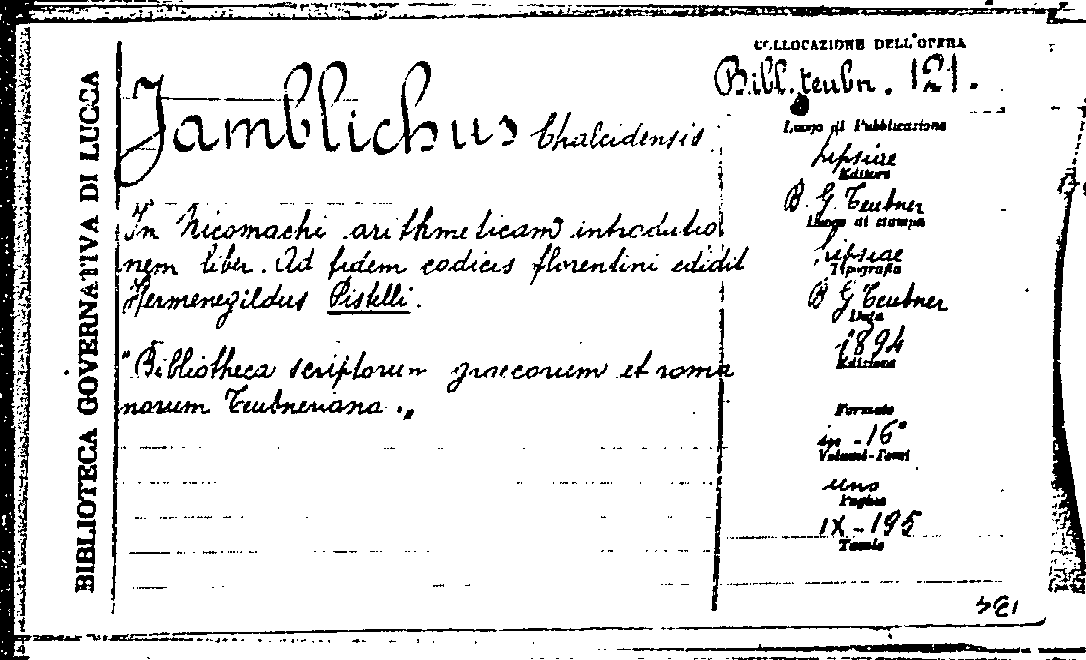 BIBLIOTECA GOVERNATIVA DI LUCCA
COLLOCAZIONE DELL'OPERA
Bibl. teubn. 121.
Jamblichus Chalcidensis
In Nicomachi arithmeticam introductio
nem liber. Ad fidem codicis florentini edidit
Hermenegildus Pistelli.
"Bibliotheca scriptorum graecorum et roma
norum Teubneriana."
Luogo di Pubblicazione
Lipsiae
Editore
B. G. Teubner
Luogo di stampa
Lipsiae
Tipografia
B G Teubner
Data
1894
Edizione
Formato
in-16°
Volumi-Tomi
uno
Pagine
IX-195
Tavole
134